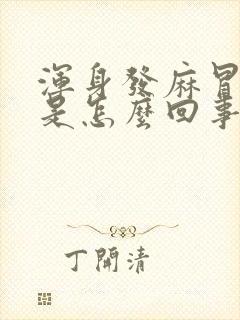 渾身發麻冒
是怎麼回事
丁開清